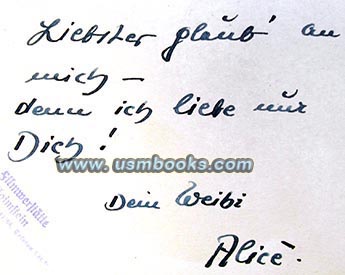 Liebster glaub' an
mich –
denn ich liebe nur
Dich!
www.usmbooks.com
Dein Weibi
Alice.